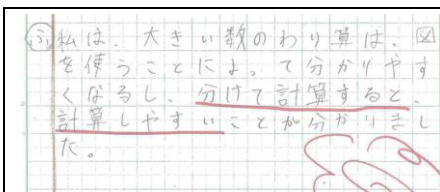 ふ 私は、大きい数のわり算は、図
を使うことによって分かりやす
くなるし、分けて計算すると、
計算しやすいことが分かりまし
た。